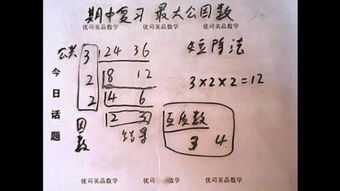 期中复习 最大公因数
优司美品数学 优司美品数学 优司美品数学
公共 3 24 36 短除法
2 8 12 3×2×2=12
2 4 6
2 3 互质数
因数 结果 3 4
今日话题
优司美品数学 优司美品数学 优司美品数学